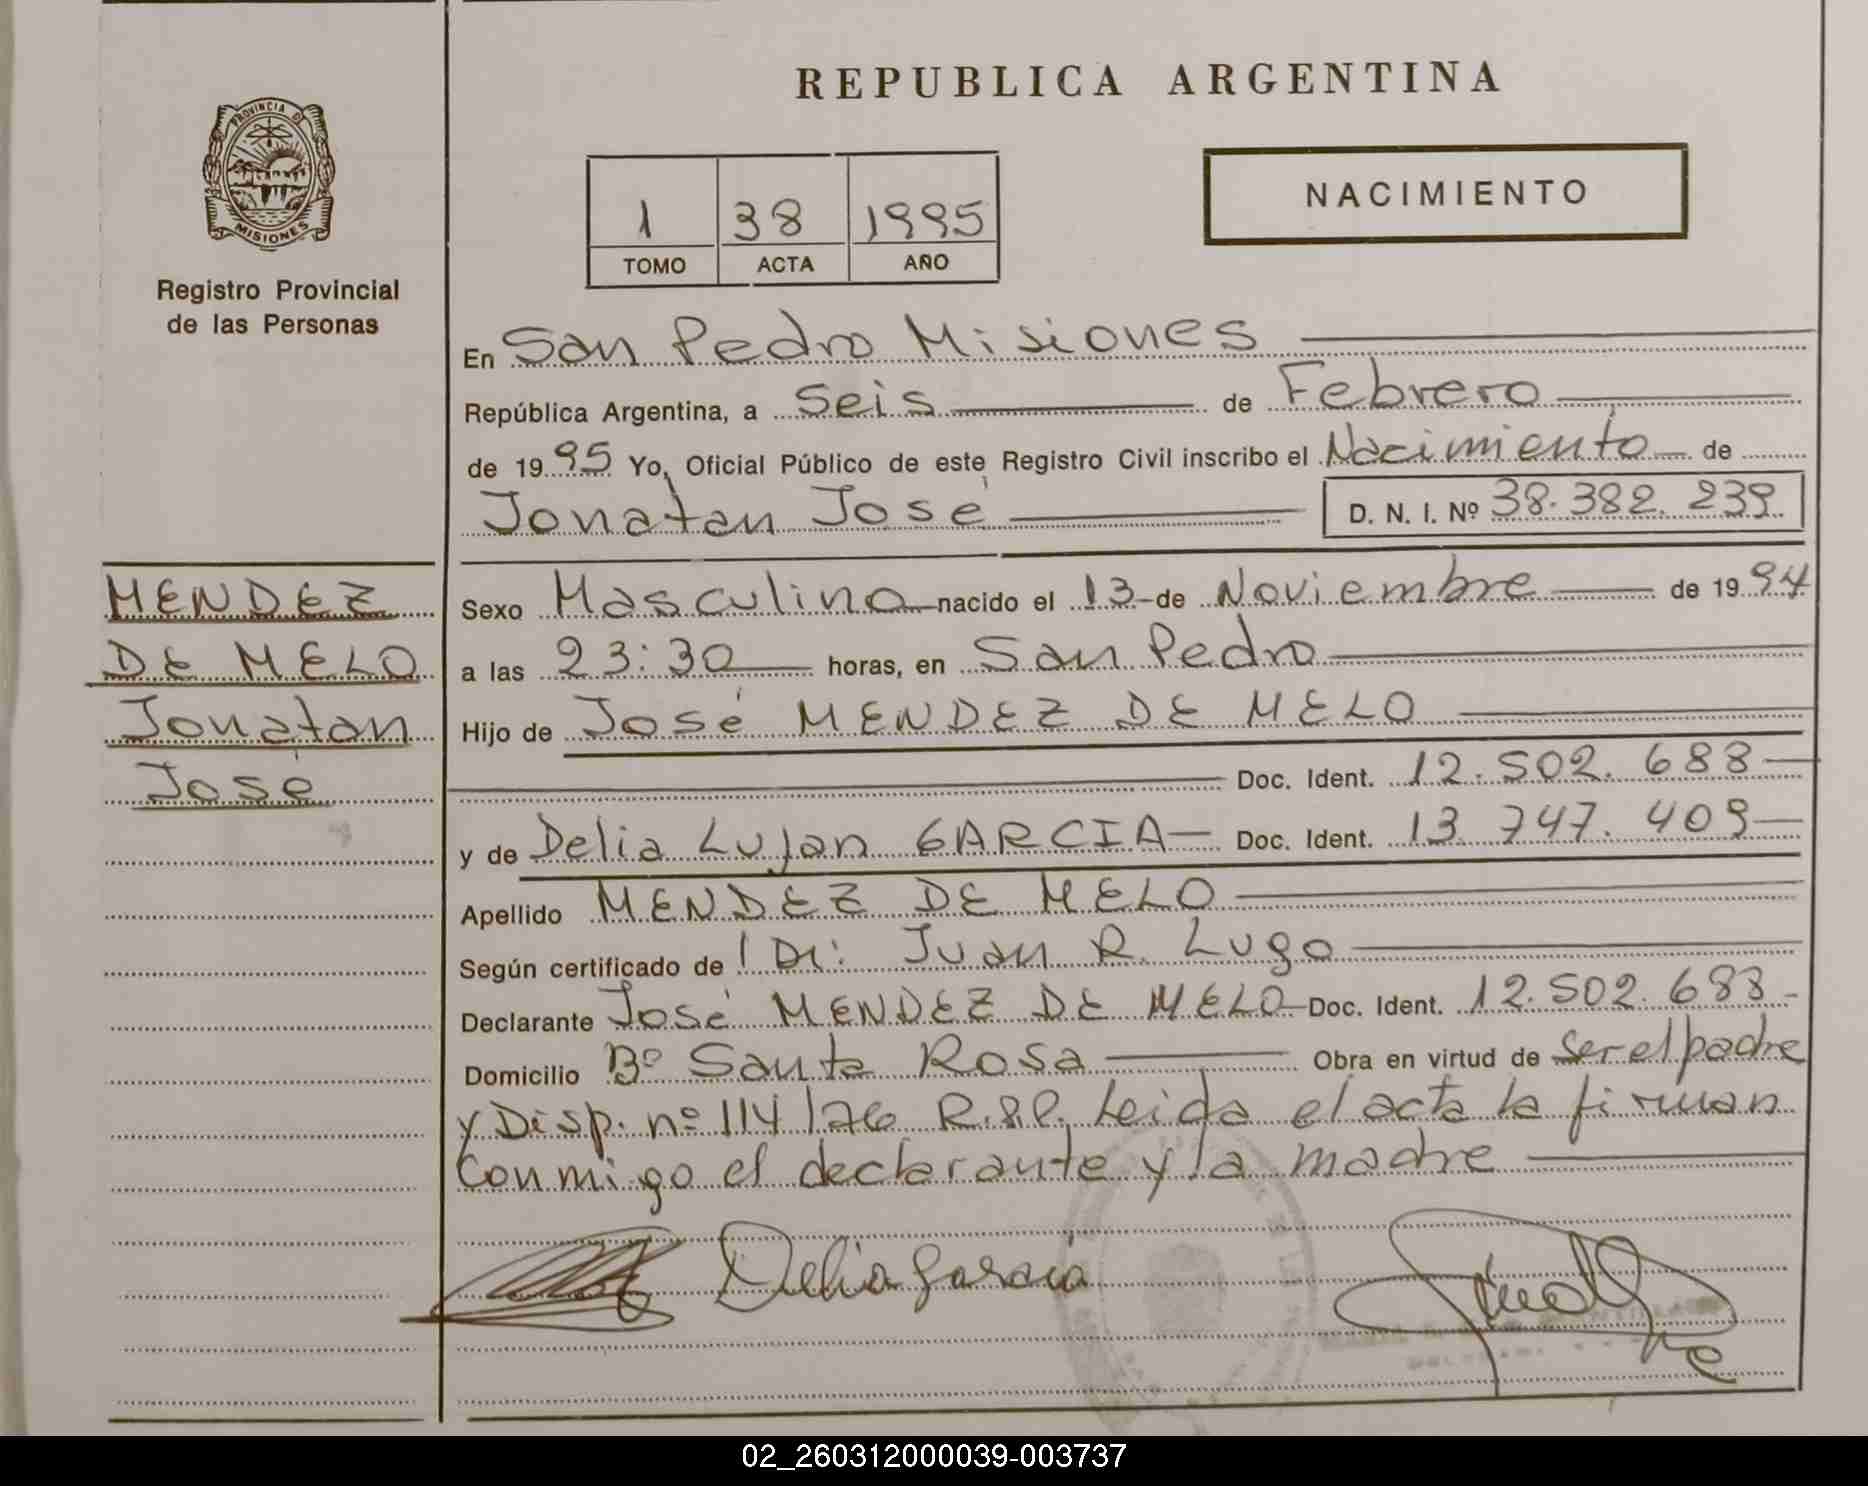 PROVINCIA D
MISIONES
Registro Provincial
de las Personas
MENDEZ
DE MELO
Jonatan
José
REPUBLICA ARGENTINA
1 38 1995
TOMO ACTA AÑO
NACIMIENTO
En San Pedro Misiones
República Argentina, a seis de Febrero
de 1995 Yo, Oficial Público de este Registro Civil inscribo el Nacimiento de
Jonatan José D. N. I. Nº 38.382.239
Sexo Masculino nacido el 13 de Noviembre de 1994
a las 23:30 horas, en San Pedro
Hijo de José MENDEZ DE MELO
Doc. Ident. 12.502.688
y de Delia Lujan GARCIA Doc. Ident. 13.747.409
Apellido MENDEZ DE MELO
Según certificado de Dr: Juan R. Lugo
Declarante José MENDEZ DE MELO Doc. Ident. 12.502.688
Domicilio Bº Santa Rosa Obra en virtud de ser el padre
y Disp. nº 114/76 R.P.P. Leida el acta la firman
conmigo el declarante y la madre
Delia Garcia
02_260312000039-003737